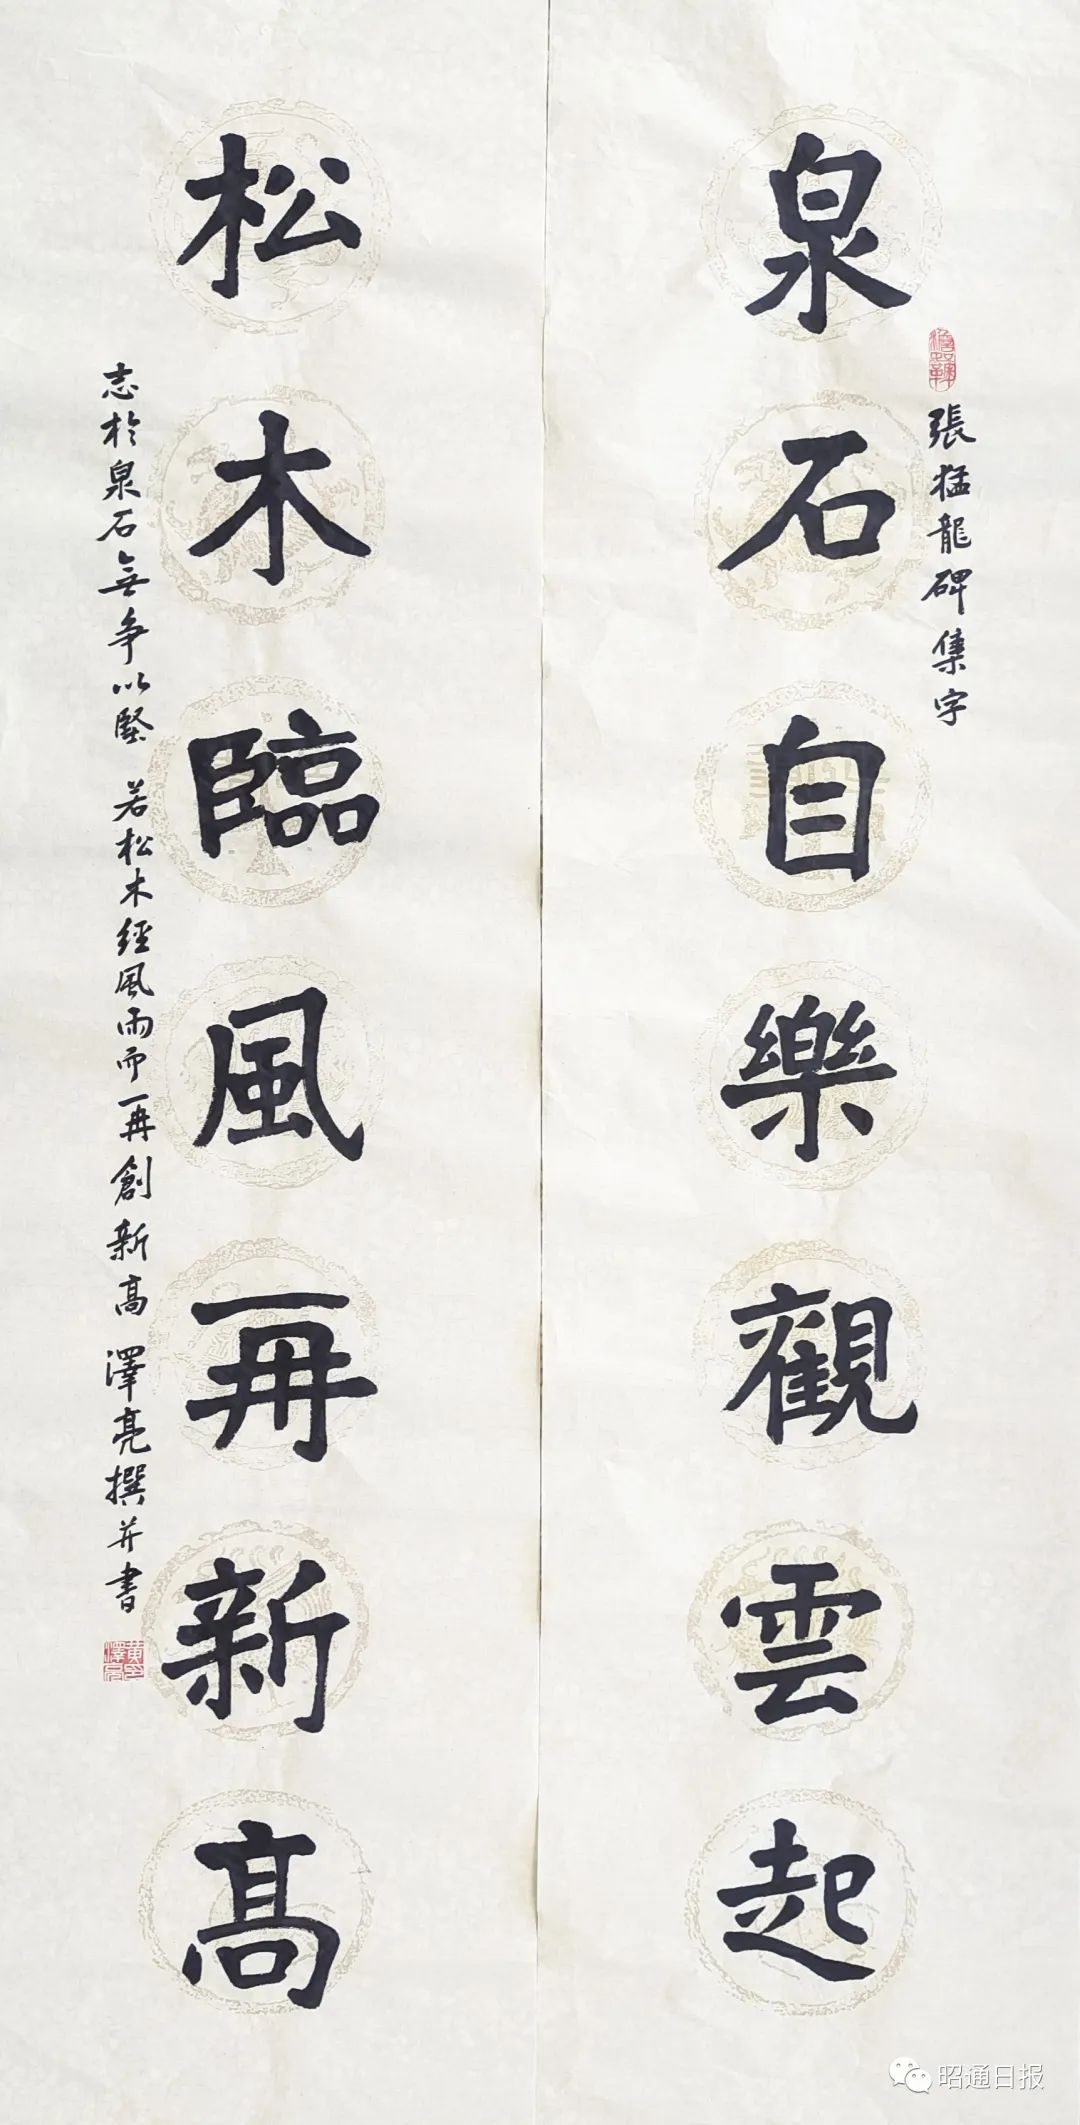 泉石自樂觀雲起
張猛龍碑集字
松木臨風再新高
志於泉石無争以堅 若松木經風雨而再創新高 澤亮撰并書
昭通日报